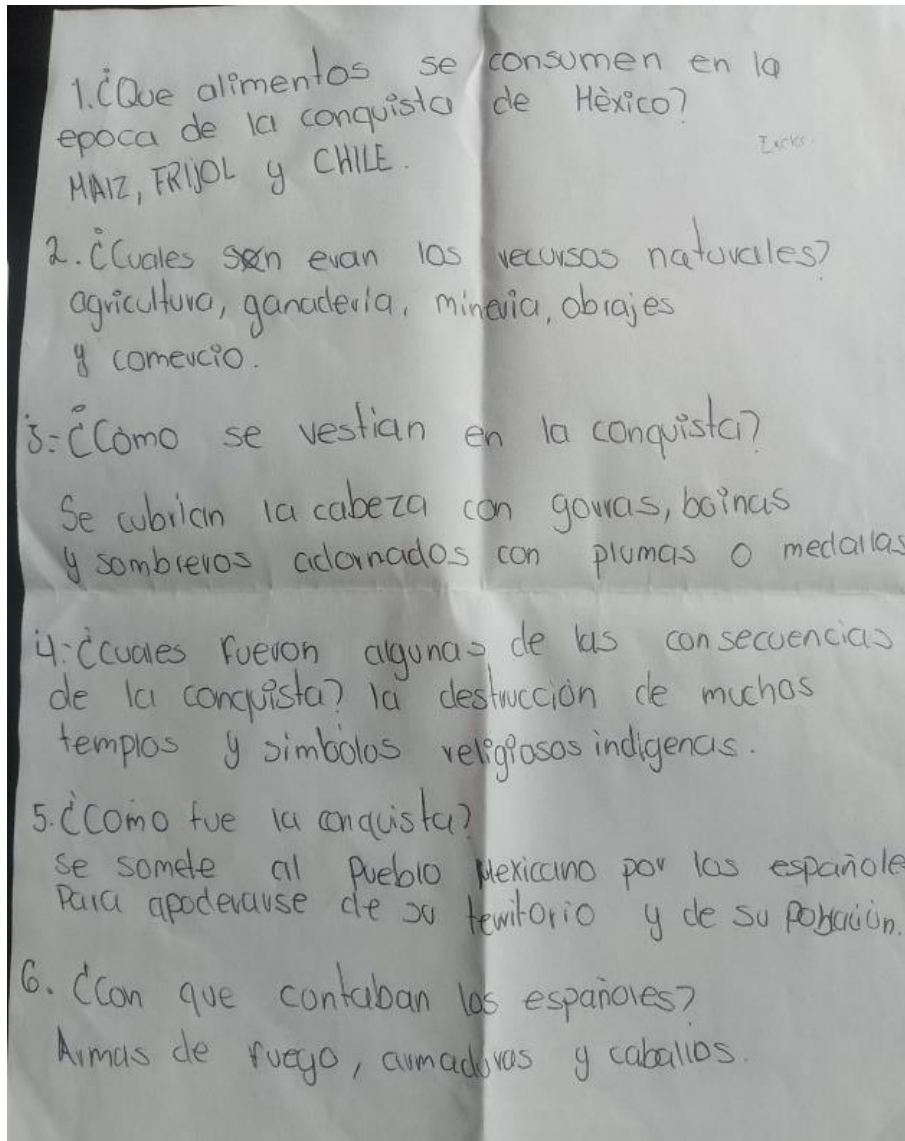 1. ¿Que alimentos se consumen en la
epoca de la conquista de Mèxico?
MAIZ, FRIJOL y CHILE.
2. ¿Cuales son eran los recursos naturales?
agricultura, ganaderia, mineria, obrajes
y comercio.
3: ¿Còmo se vestian en la conquista?
Se cubrian la cabeza con gorras, boinas
y sombreros adornados con plumas o medallas
4: ¿cuales fueron algunas de las consecuencias
de la conquista? la destrucción de muchos
templos y simbolos religiosos indigenas.
5. ¿Como fue la conquista?
se somete al Pueblo Mexicano por los españole
Para apoderarse de su territorio y de su población.
6. ¿Con que contaban los españoles?
Armas de fuego, armaduras y caballos.